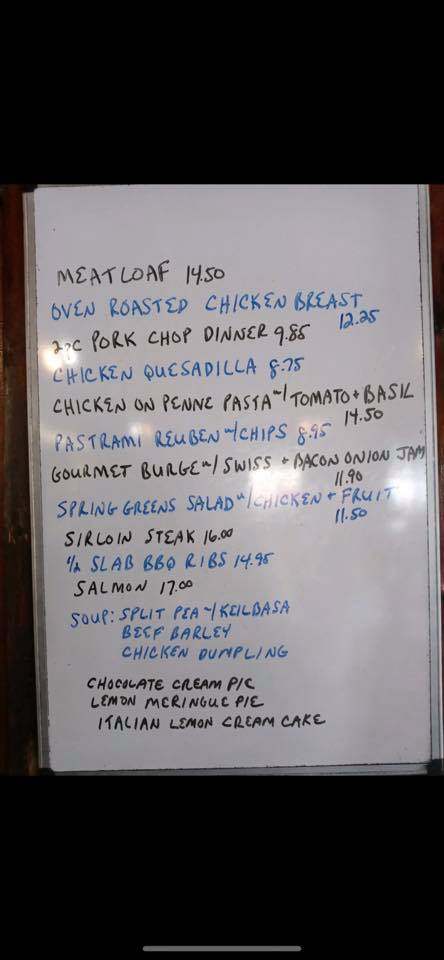 MEATLOAF 14.50
OVEN ROASTED CHICKEN BREAST
12.25
2PC PORK CHOP DINNER 9.85
CHICKEN QUESADILLA 8.75
CHICKEN ON PENNE PASTA w/ TOMATO + BASIL
14.50
PASTRAMI REUBEN w/ CHIPS 8.95
GOURMET BURGE w/ SWISS + BACON ONION JAM
11.90
SPRING GREENS SALAD w/ CHICKEN + FRUIT
11.50
SIRLOIN STEAK 16.00
1/2 SLAB BBQ RIBS 14.95
SALMON 17.00
SOUP: SPLIT PEA w/ KEILBASA
BEEF BARLEY
CHICKEN DUMPLING
CHOCOLATE CREAM PIE
LEMON MERINGUE PIE
ITALIAN LEMON CREAM CAKE